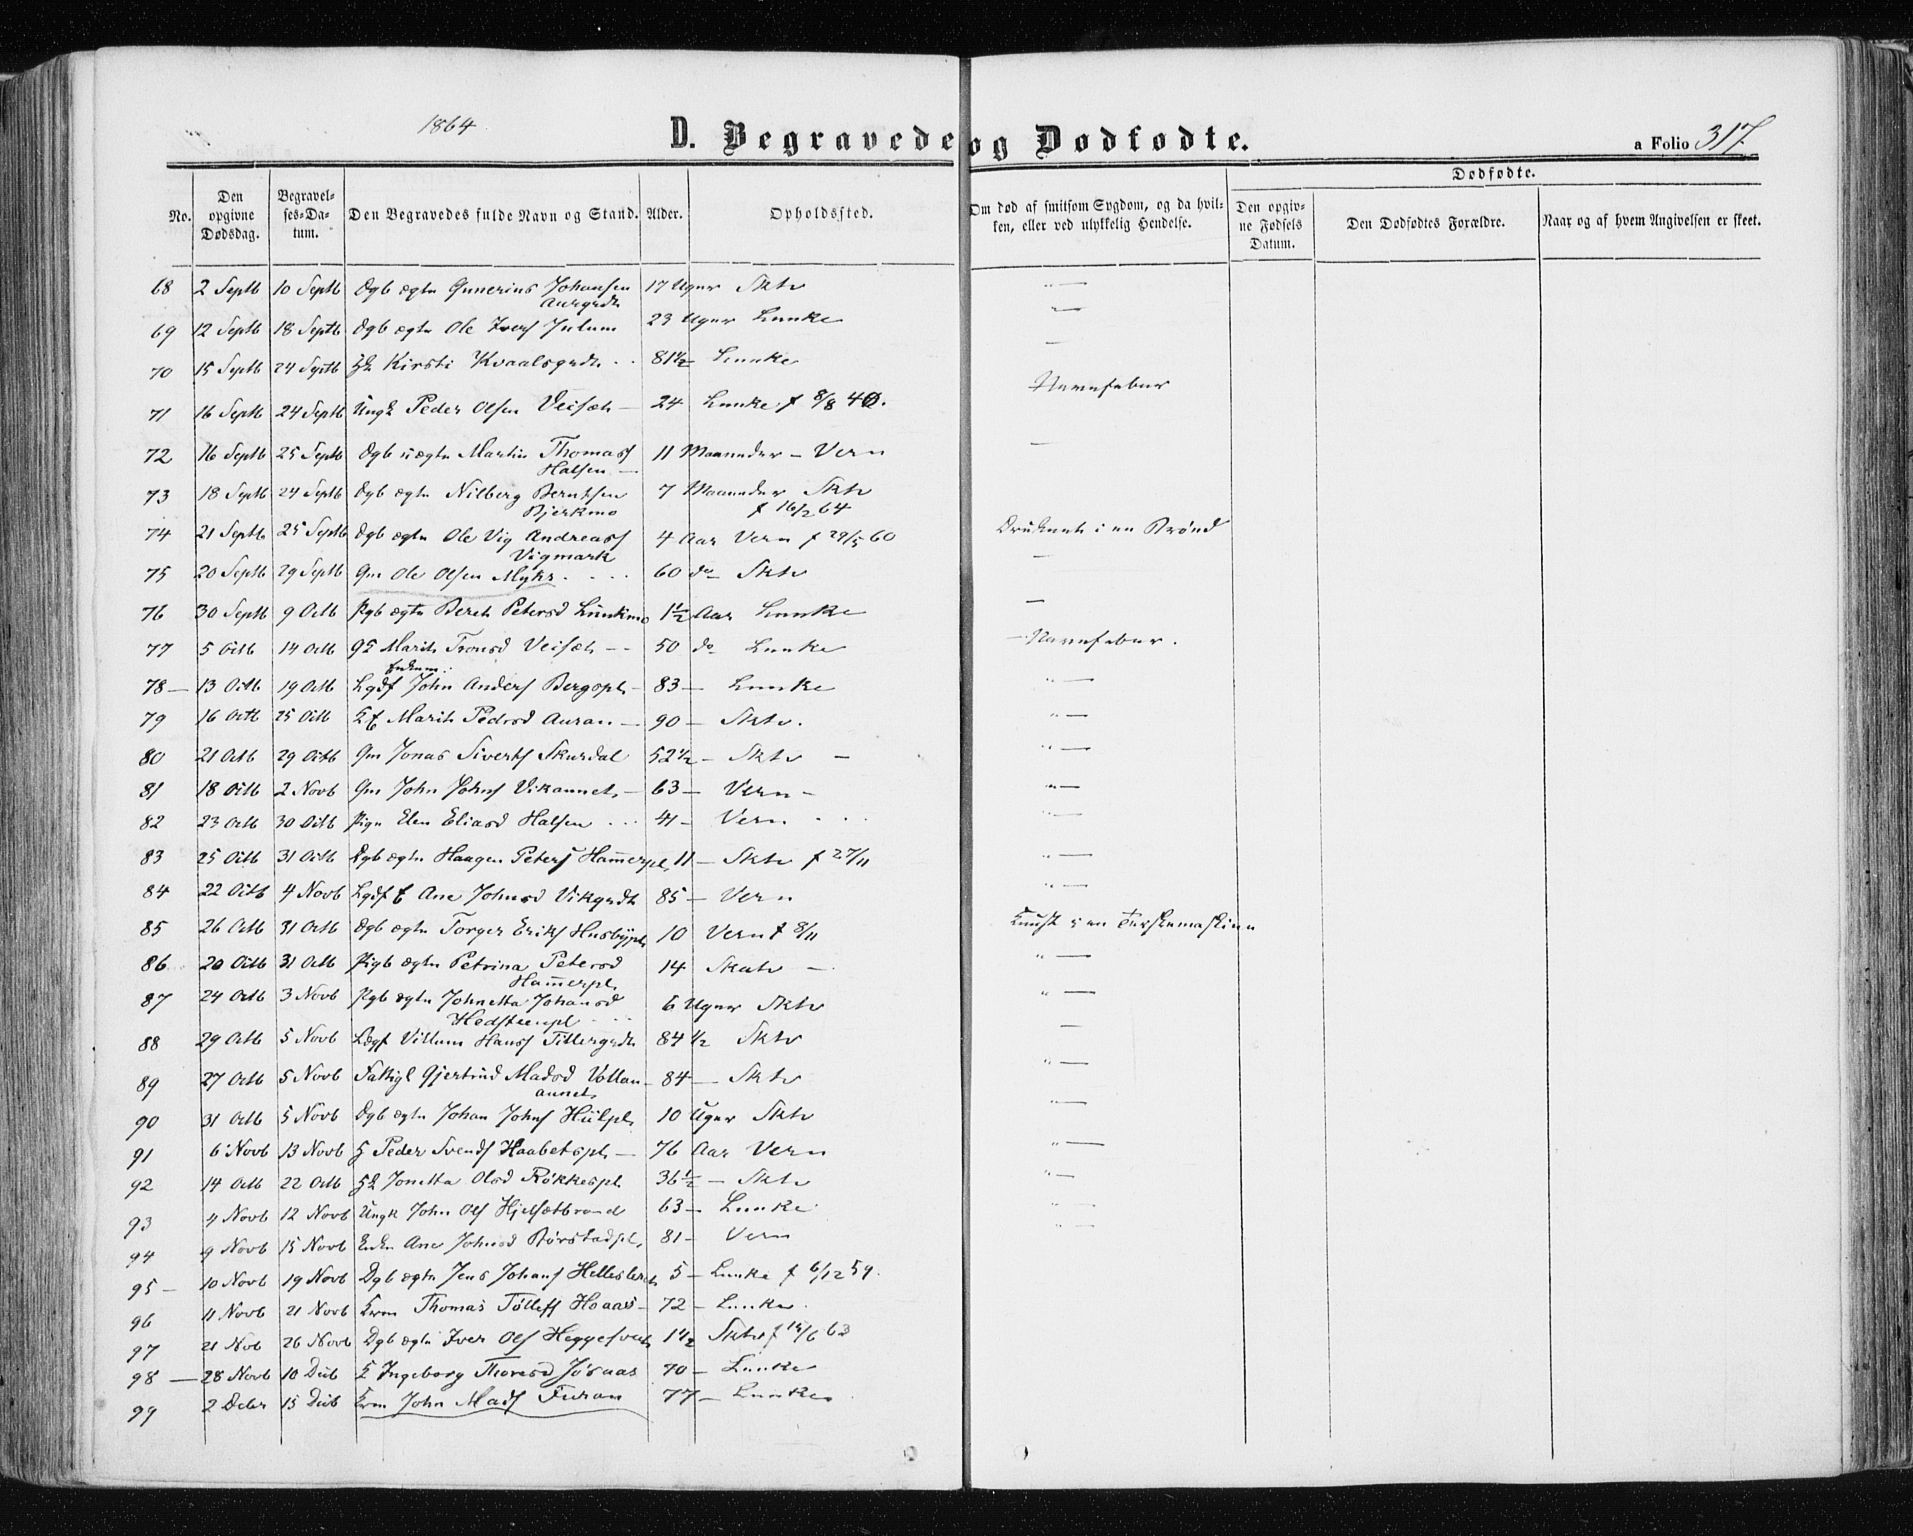 1864
D. Begravede og Dødfødte.
a Folio 317
No.
Den opgivne Dødsdag.
Begravelses-Datum.
Den Begravedes fulde Navn og Stand.
Alder.
Opholdssted.
Om død af smitsom Sygdom, og da hvilken, eller ved ulykkelig Hendelse.
Dødfødte.
Den opgivne Fødsels Datum.
Den Dødfødtes Forældre.
Naar og af hvem Angivelsen er skeet.
68 2 Septb 10 Septb Dgb ægte Gunerius Johansen 17 Uger Sktv "—
Aurgrdt
69 12 Septb 18 Septb Dgb ægte Ole Ivers Julum 23 Uger Lunke "—
70 15 Septb 24 Septb Kirsti Kvaalsgrdt 81½ Lunke —
71 16 Septb 24 Septb Ungk Peder Olsen Veiseth — 24 Lunke f 8/8 40. Nervefeber
72 16 Septb 25 Septb Dgb uægte Martin Thomass 11 Maaneder — Vern —
Halsen —
73 18 Septb 24 Septb Dgb ægte Nilberg Berntsen 7 Maaneder Sktv
Bjerkmo f 16/2 64
74 21 Septb 25 Septb Dgb ægte Ole Vig Andreass 4 Aar Vern f 29/5 60 Druknet i en Brønd
Vigmark —
75 20 Septb 29 Septb Gm Ole Olsen Myhr 60 do Sktv
76 30 Septb 9 Octb Pgb ægte Bereth Petersd Lunkmo 1½ Aar Lunke —
77 5 Octb 14 Octb Marith Tronsd Veiseth -- 50 do Lunke — Nervefeber.
Enkem.
78 — 13 Octb 19 Octb Lgdf John Anders Bergspl — 83 — Lunke "—
79 16 Octb 25 Octb Marith Pedrsd Auran — 90 — Sktv. "—
80 21 Octb 29 Octb Gm Jonas Siverts Skurdal 52½ — Sktv — "—
81 18 Octb 2 Novb Gm John Johns Vikannet — 63 — Vern — "—
82 23 Octb 30 Octb Pige Elen Eliasd Halsen 41 — Vern "—
83 25 Octb 31 Octb Dgb ægte Haagen Peters Hammerpl 11 — Sktv f 27/11 "—
84 22 Octb 4 Novb Lgdf Ane Johnsd Vikgrdt 85 — Vern "—
85 26 Octb 31 Octb Dgb ægte Torger Eriks Husbypl 10 Vern f 8/11 Knust i en Terskemaskine
86 20 Octb 31 Octb Pigb ægte Petrina Petersd 14 Skatv — "—
Hammerpl
87 24 Octb 3 Novb Pgb ægte Johnetta Johansd 6 Uger Sktv "—
Hedsteenpl
88 29 Octb 5 Novb Lægf Villum Hans Tillergrdt 84 ½ Sktv —
89 27 Octb 5 Novb Fattigl Gjertrud Madsd Vollan — 84 — Sktv "—
annet
90 31 Octb 5 Novb Dgb ægte Johan Johns Hülpl 10 Uger Sktv "—
91 6 Novb 13 Novb Peder Svends Haabetspl — 76 Aar Vern "—
92 14 Octb 22 Octb Jonetta Olsd Røkkespl 36½ — Sktv "—
93 4 Novb 12 Novb Ungk John Ols Hjelsetbrand 63 — Lunke "—
94 9 Novb 15 Novb Enke Ane Johnsd Børstadpl. 81 — Vern "—
95 — 10 Novb 19 Novb Dgb ægte Jens Johans Hellesberth 5 — Lunke f 6/12 59.
96 11 Novb 21 Novb Thomas Tøllefs Haaas — 72 — Lunke.
97 21 Nob 26 Novb Dgb ægte Iver Ols Heggesvedt 1½ Sktv f 14/6 63
98 — 28 Novb 10 Decb Ingeborg Thoresd Jøraas 70 — Lunke
99 2 Decbr 15 Decb John Mads Furan 77 — Lunke